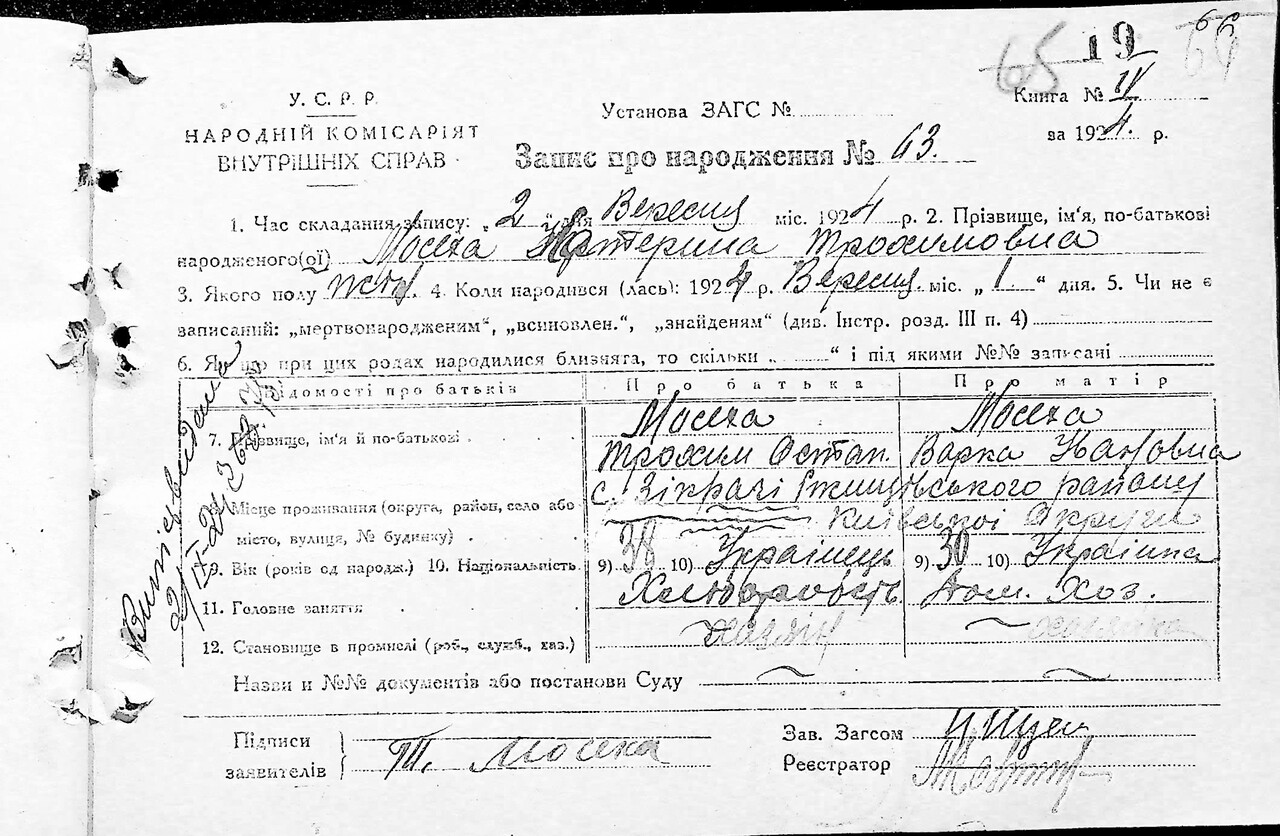 65 19 66 66
У. С. Р. Р.
НАРОДНІЙ КОМІСАРІЯТ
ВНУТРІШНІХ СПРАВ
Установа ЗАГС №
Книга № IV
за 1924. р.
Запис про народження № 63.
1. Час складання запису: „2“ дня Вересня міс. 1924 р. 2. Прізвище, ім'я, по-батькові
народженого(ої) Мосеха Катерина Трохимовна
3. Якого полу жін. 4. Коли народився (лась): 1924 р. Вересня міс. „1“ дня. 5. Чи не є
записаний: „мертвонародженим“, „всиновлен.“, „знайденям“ (див. Інстр. розд. III п. 4)
6. Як що при цих родах народилися близнята, то скільки „ “ і під якими №№ записані
Відомості про батьків
Про батька
Про матір
7. Прізвище, ім'я й по-батькові
Мосеха
Трохим Остап.
Мосеха
Варка Ивановна
8. Місце проживання (округа, район, село або
місто, вулиця, № будинку)
с. Зікрачі Ржищівського району
Київської Округи
9. Вік (років од народж.) 10. Національність
9) 38 10) Українець
9) 30 10) Українка
11. Головне заняття
Хлібопрабство
Дом. Хоз.
12. Становище в промислі (роб., служб., хаз.)
хазяін
хазяйка
Назви и №№ документів або постанови Суду
Підписи
заявителів
Т. Мосеха
Зав. Загсом
Реєстратор